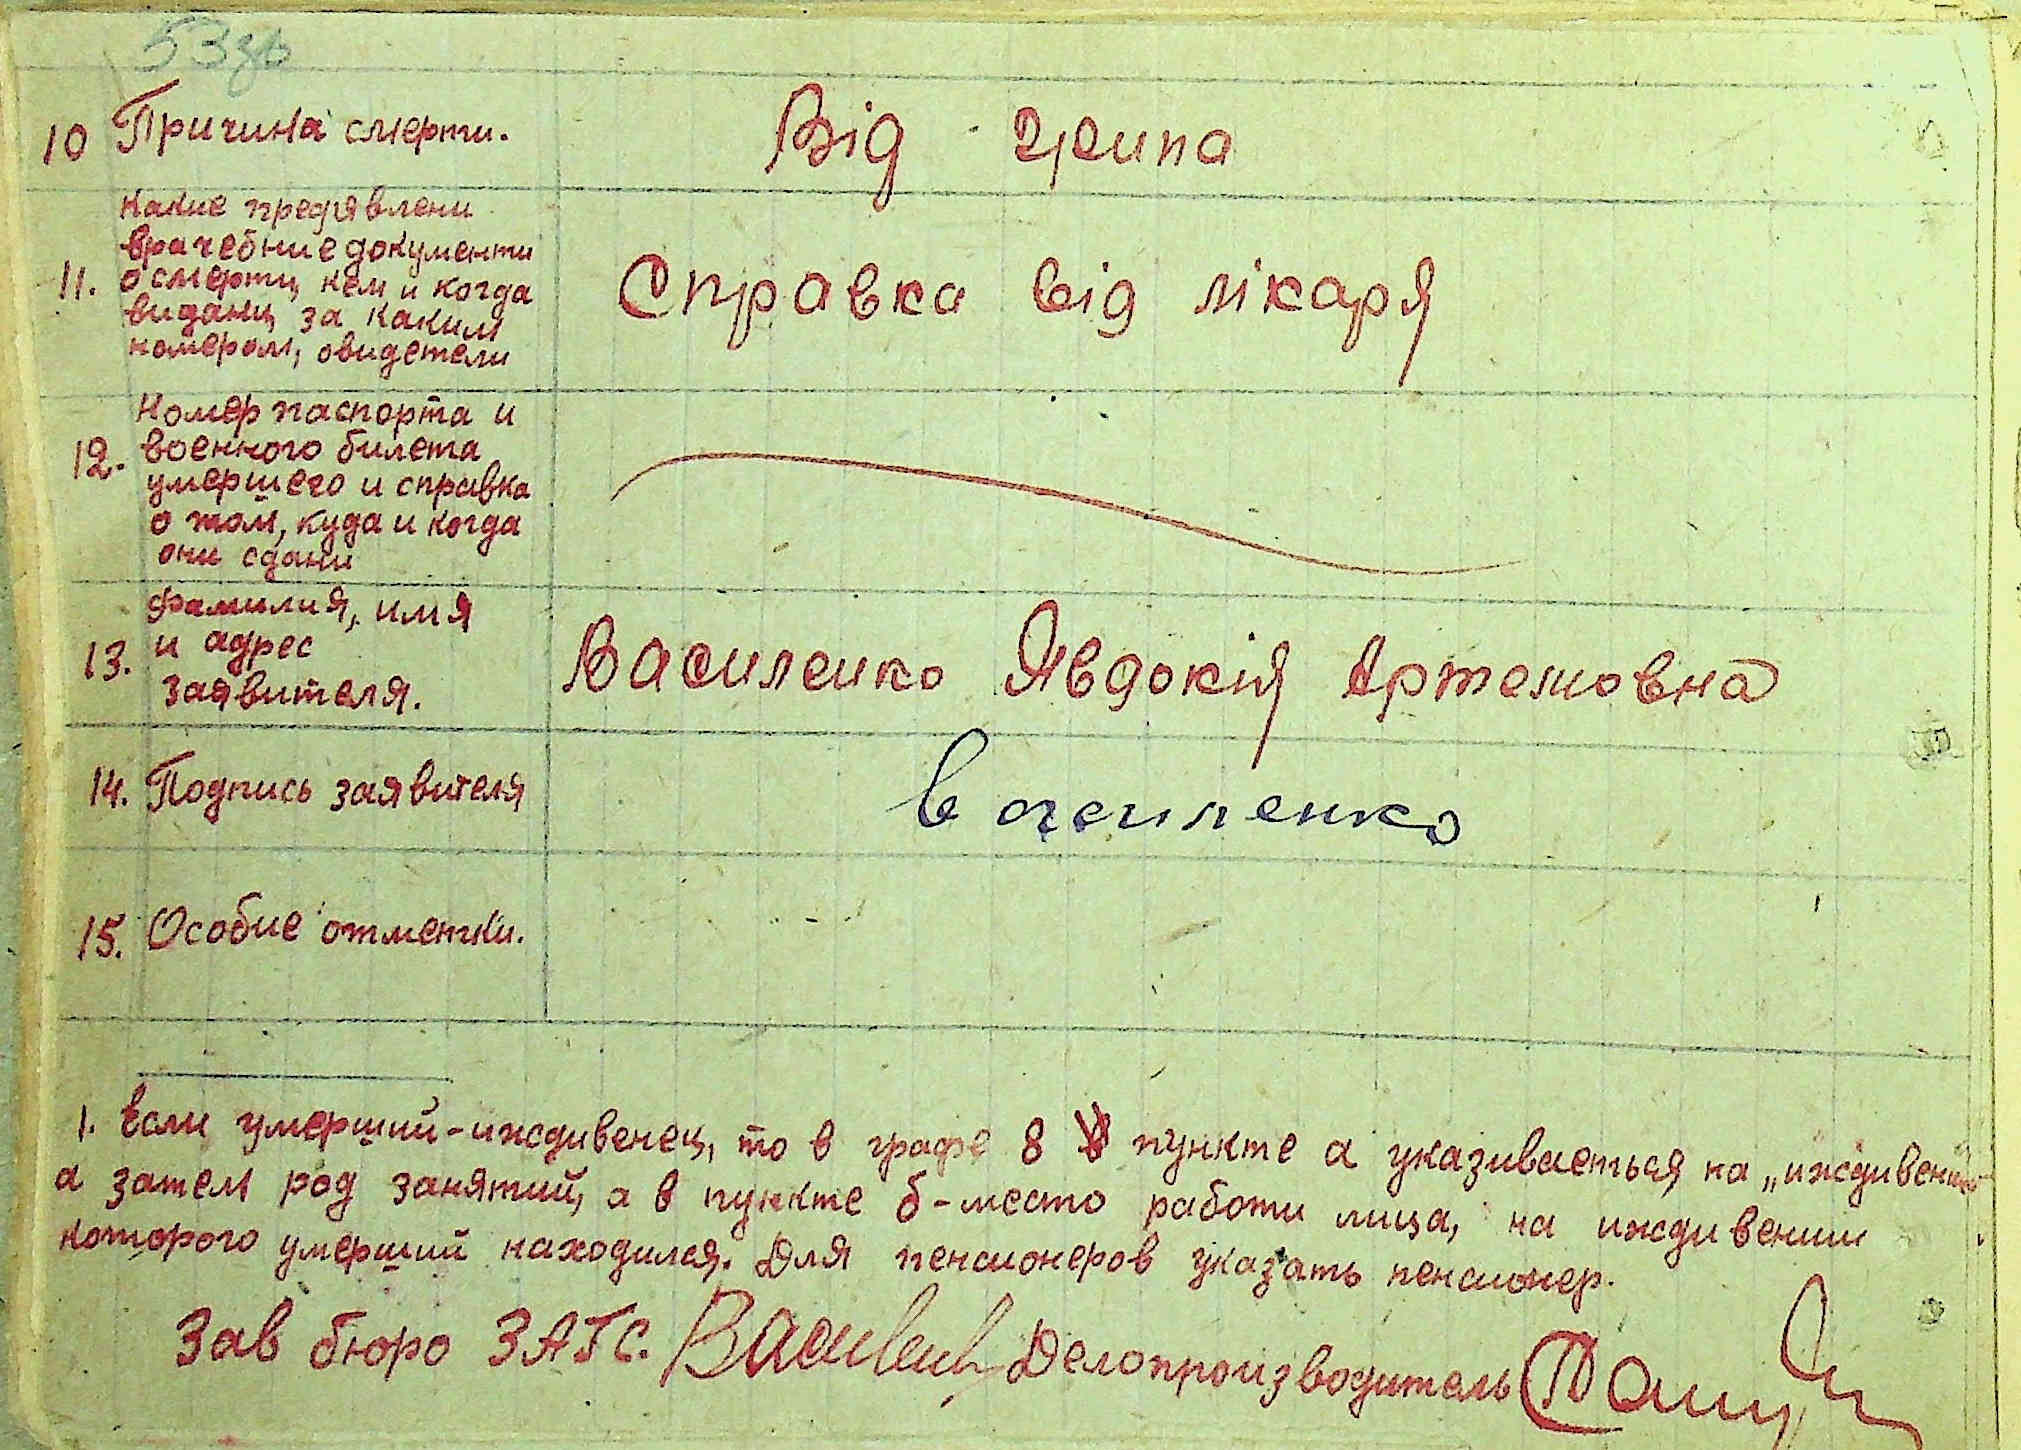 53зв
10 Причина смерти.
Від грипа
какие предявлени
врачебние документи
11. о смерти, кем и когда
видани, за каким
номером, свидетели
Справка від лікаря
Номер паспорта и
12. военного билета
умершего и справка
о том, куда и когда
они сдани
фамилия, имя
13. и адрес
заявителя.
Василенко Явдокія Артемовна
14. Подпись заявителя
василенко
15. Особие отметки.
1. Если умерший-иждивенец, то в графе 8 пункте а указиваеться на „иждивении"
а затем род занятий, а в пункте б-место работи лица, на иждивении
которого умерший находился. Для пенсионеров указать пенсионер.
Зав бюро ЗАГС. Делопроизводитель